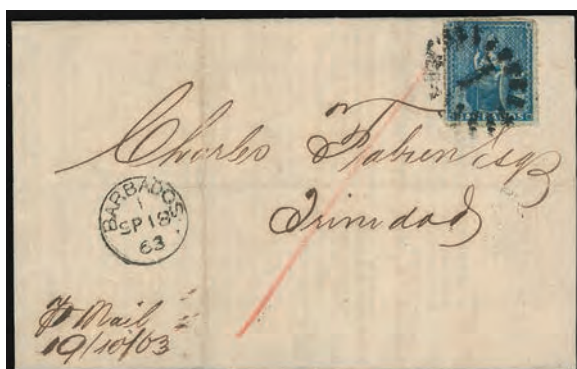 BARBADOS
Charles Fabien Esq
Trinidad
BARBADOS
1
SP 18
63
Mail
19/10/63